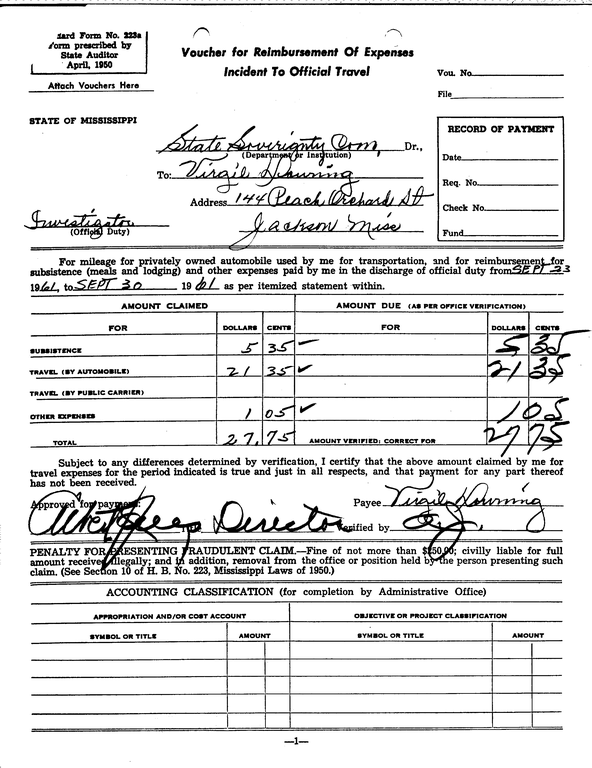 dard Form No. 223a
Form prescribed by
State Auditor
April, 1950
Attach Vouchers Here
Voucher for Reimbursement Of Expenses
Incident To Official Travel
Vou. No.
File
STATE OF MISSISSIPPI
State Soverignty Com, Dr.,
(Department or Institution)
To: Virgil Downing
Address 144 Peach Orchard St
Jackson Miss
Investigator
(Official Duty)
RECORD OF PAYMENT
Date
Req. No.
Check No.
Fund
For mileage for privately owned automobile used by me for transportation, and for reimbursement for
subsistence (meals and lodging) and other expenses paid by me in the discharge of official duty from SEPT 23
1961, to SEPT 30 1961 as per itemized statement within.
AMOUNT CLAIMED AMOUNT DUE (AS PER OFFICE VERIFICATION)
FOR DOLLARS CENTS FOR DOLLARS CENTS
SUBSISTENCE 5 35 ✓ 5 35
TRAVEL (BY AUTOMOBILE) 21 35 ✓ 21 35
TRAVEL (BY PUBLIC CARRIER)
OTHER EXPENSES 1 05 ✓ 1 05
TOTAL 27.75 AMOUNT VERIFIED: CORRECT FOR 27 75
Subject to any differences determined by verification, I certify that the above amount claimed by me for
travel expenses for the period indicated is true and just in all respects, and that payment for any part thereof
has not been received.
Approved for payment: Payee Virgil Downing
Director Verified by
PENALTY FOR PRESENTING FRAUDULENT CLAIM.—Fine of not more than $250.00; civilly liable for full
amount received illegally; and in addition, removal from the office or position held by the person presenting such
claim. (See Section 10 of H. B. No. 223, Mississippi Laws of 1950.)
ACCOUNTING CLASSIFICATION (for completion by Administrative Office)
APPROPRIATION AND/OR COST ACCOUNT OBJECTIVE OR PROJECT CLASSIFICATION
SYMBOL OR TITLE AMOUNT SYMBOL OR TITLE AMOUNT
—1—